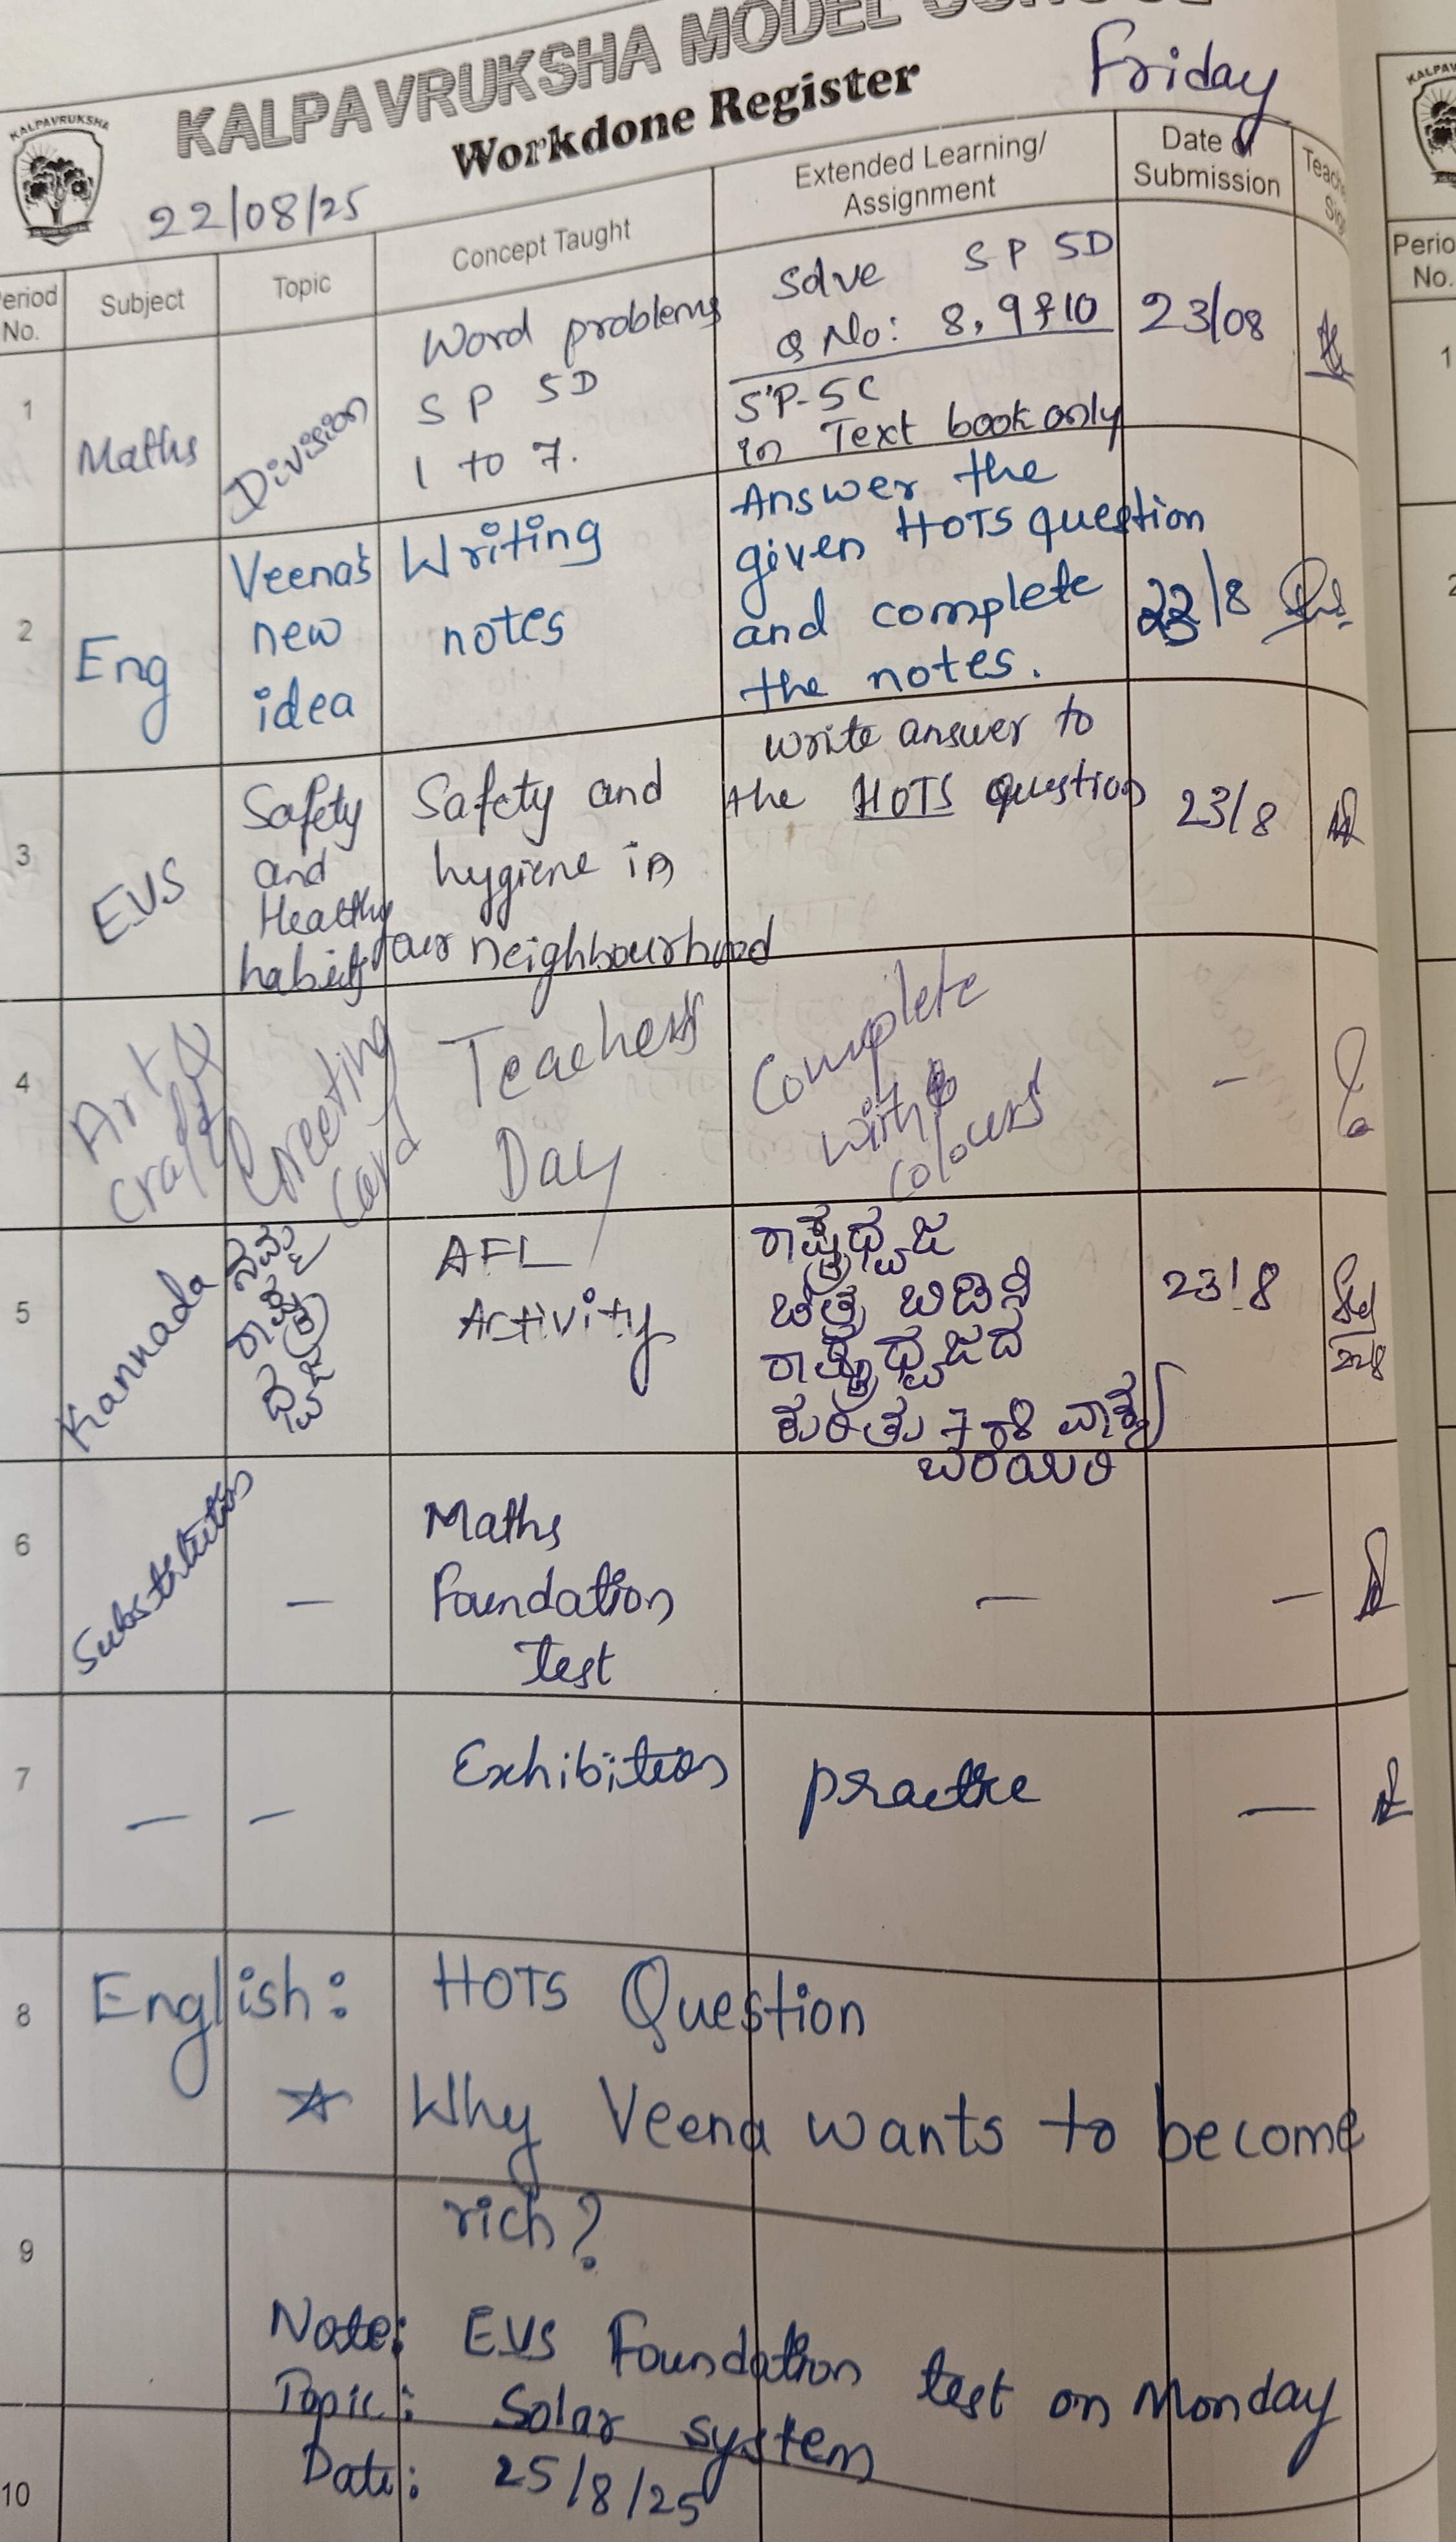 KALPAVRUKSHA MODEL SCHOOL
Workdone Register
Friday
KALPAVRUKSHA
22/08/25
Period No.
Subject
Topic
Concept Taught
Extended Learning/ Assignment
Date of Submission
1
Maths
Division
Word problems
SP 5D
1 to 7.
Solve SP 5D
Q No: 8, 9 & 10
SP-5C
in Text book only
23/08
2
Eng
Veena's
new
idea
Writing
notes
Answer the
given HOTS question
and complete
the notes.
23/8
3
EVS
Safety
and
Healthy
habits
Safety and
hygiene in
our neighbourhood
write answer to
the HOTS question
23/8
4
Art &
Craft
Greeting
Card
Teachers
Day
Complete
with
colours
-
5
Kannada
ನಮ್ಮ
ರಾಷ್ಟ್ರ
ಧ್ವಜ
AFL
Activity
ರಾಷ್ಟ್ರಧ್ವಜ
ಚಿತ್ರ ಬಿಡಿಸಿ
ರಾಷ್ಟ್ರಧ್ವಜದ
ಕುರಿತು 7-8 ವಾಕ್ಯ
ಬರೆಯಿರಿ
23/8
22/8
6
Substitution
-
Maths
Foundation
Test
-
-
7
-
-
Exhibition practice
-
8
English: HOTS Question
☆ Why Veena wants to become
rich?
9
Note: EVS Foundation test on Monday
Topic: Solar system
Date: 25/8/25
10
Perio
No.
1
2